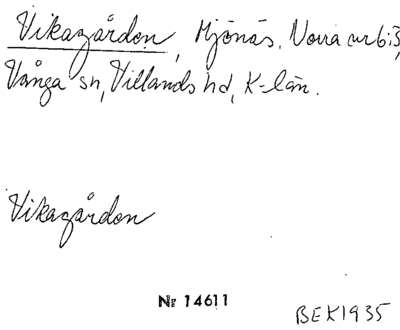 Vikagården, Mjönäs, Norra nr 6:3,
Vånga sn, Villands hd, K-län.
Vikagården
Nr 14611
BEK1935